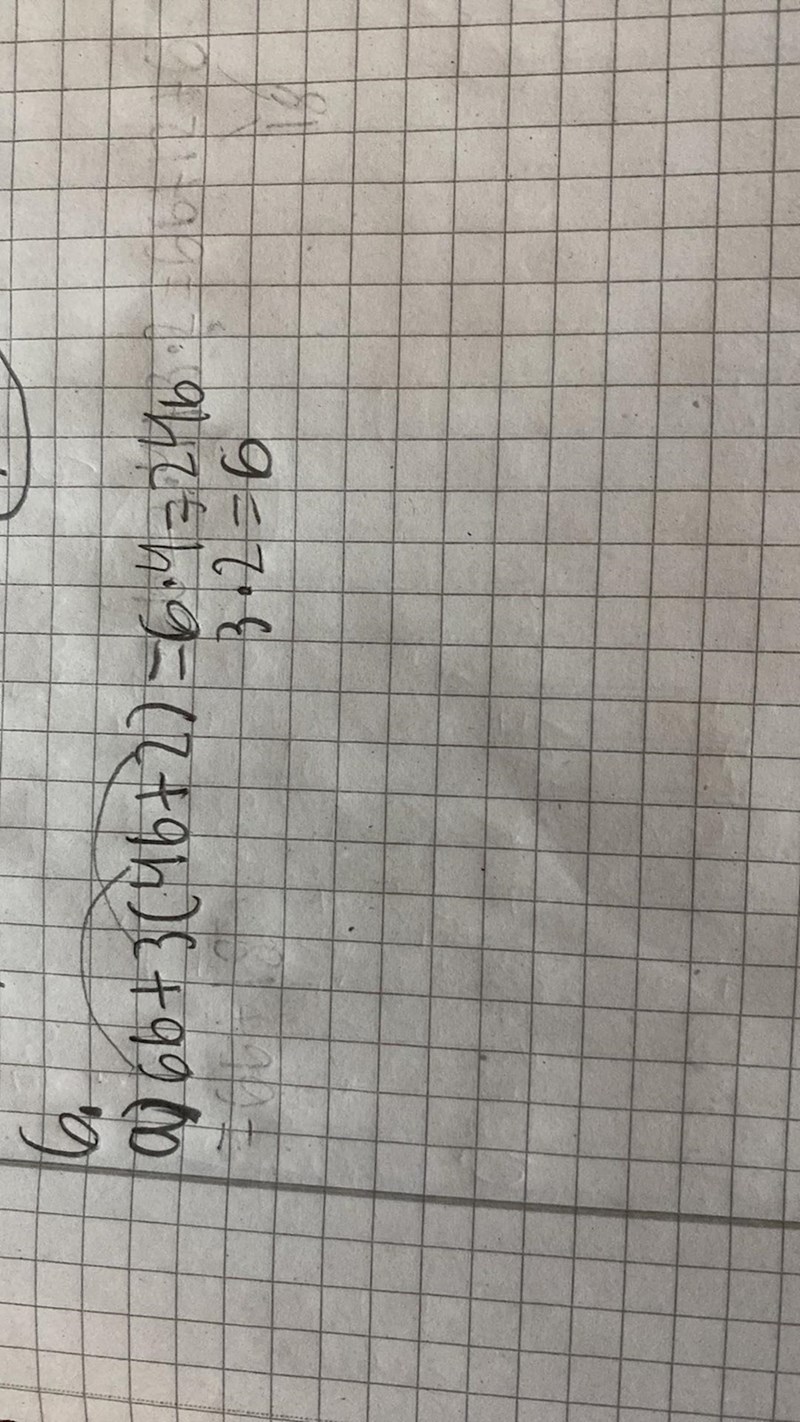 6.
a) 6b+3(4b+2) = 6·4=24b
3·2=6